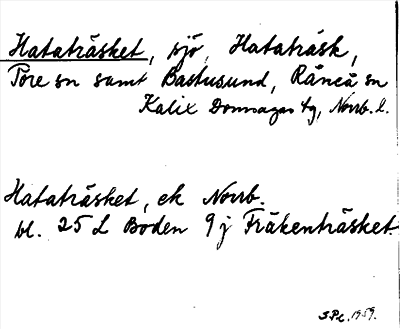 Hataträsket, sjö, Hataträsk,
Töre sn samt Bastusund, Råneå sn
Kalix Domsagas tg, Norrb. l.
Hataträsket, ek Norrb.
bl. 25 L Boden 9 j Fräkenträsket.
1959.